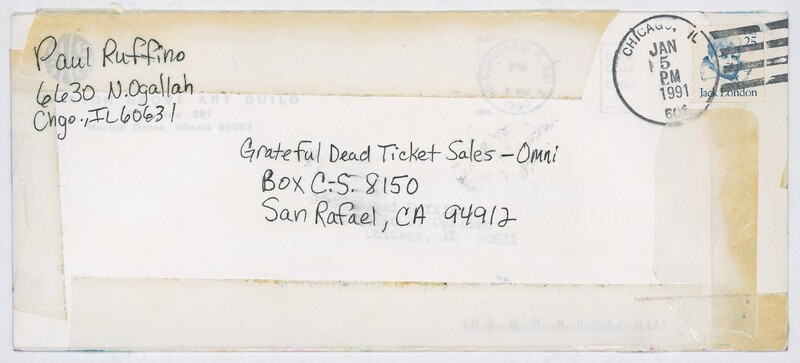 Paul Ruffino
6630 N. Ogallah
Chgo., IL 60631
ART GUILD
Morton Grove, Illinois 60053
CHICAGO, IL
JAN
5
PM
1991
606
25
Jack London
PM
Grateful Dead Ticket Sales - Omni
Box C.S. 8150
San Rafael, CA 94912
Chicago, IL 60631